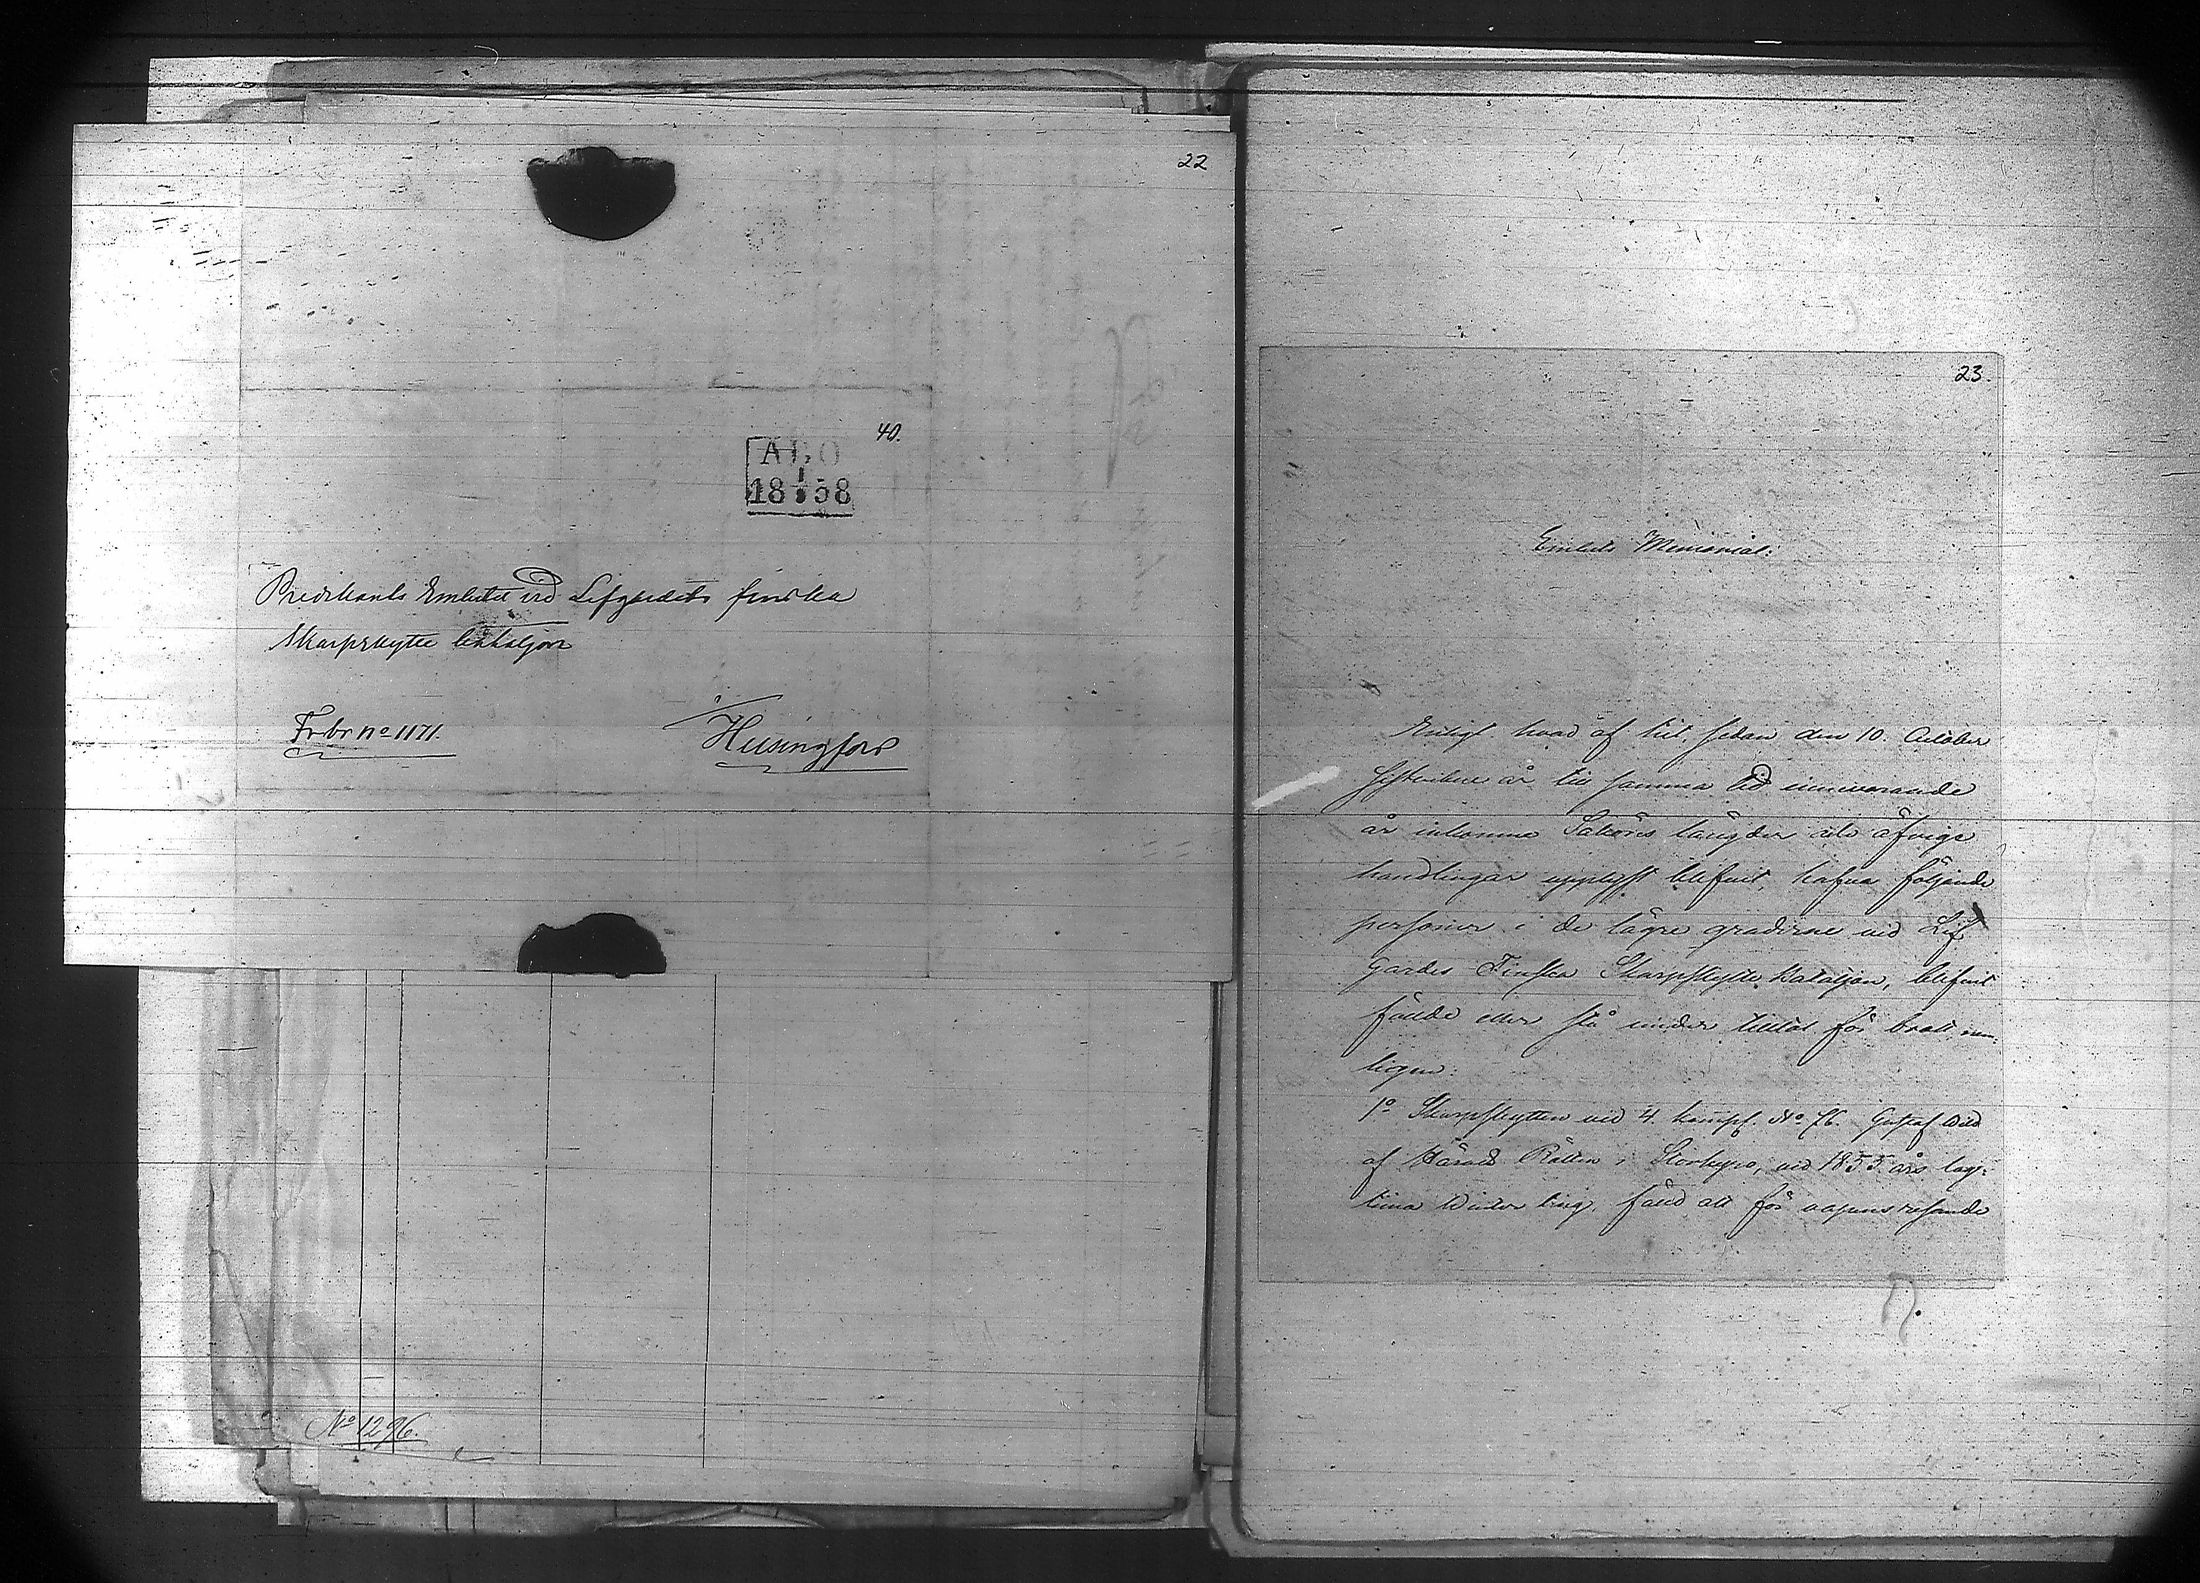 22
40.
ABO
18 1/ 58
Predikants Embetet vid Lifgardets finska
Skarpskytte bataljon
Frbr No 1171.
Helsingfors
No 1296.
23.
Embets Memorial:
Enligt hvad af hit sedan den 10. October
sistledne år till samma tid innevarande
år inkomne Saköres längder och öfrige
handlingar upplyst blifvit, hafva följande
personer i de lägre graderne vid Lif
Gardes Finska Skarpskytte Bataljon, blifvit
fällde eller stå under tilltal för brott, nem-
ligen:
1o Skarpskytten vid 4. komp. No 76. Gustaf Wild
af Härads Rätten i Storkyro, vid 1855 års lag-
tima Winter ting, fälld att för vapens resande